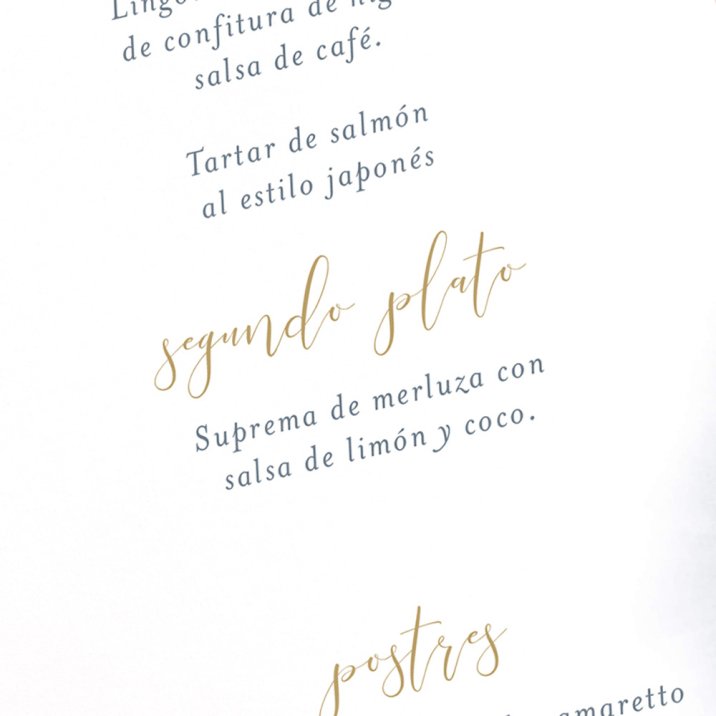 de confitura de
salsa de café.
Tartar de salmón
al estilo japonés
segundo plato
Suprema de merluza con
salsa de limón y coco.
postres
amaretto